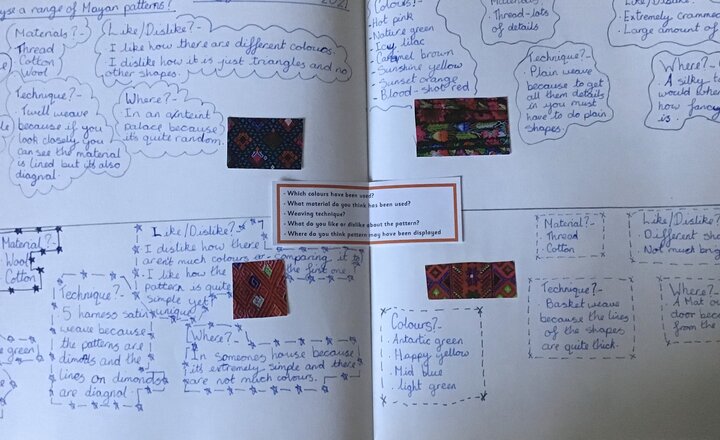 yse a range of Mayan patterns?
2021
Materials?-
Thread
Cotton
Wool
Like/Dislike?-
I like how there are different colours.
I dislike how it is just triangles and no
other shapes.
Technique?-
Twill weave
because if you
look closely you
can see the material
is lined but its also
diagnal.
Where?-
In an axnteint
palace because
its quite random.
Colours?-
Hot pink
Nature green
Icy lilac
Caramel brown
Sunshine yellow
Sunset orange
Blood-shot red
Materials?-
Thread-lots
of details
Like/Dislike?-
Extremely cramme
Large amount of
Technique?-
Plain weave
because to get
all them details
in you must
have to do plain
shapes.
Where?-
A silky
would
how fancy
is.
- Which colours have been used?
- What material do you think has been used?
- Weaving technique?
- What do you like or dislike about the pattern?
- Where do you think pattern may have been displayed
Material?-
Wool
Cotton
Like/Dislike?-
I dislike how there
aren't much colours comparing it to
I like how the the first one
pattern is quite
simple yet
unique
Technique?-
5 harness satin
weave because
the patterns are
dimonds and the
lines on dimonds
are diagnal.
Where?-
In someones house because
its extremely simple and there
are not much colours.
e green
Material?-
Thread
Cotton
Like/Dislike?
Different sha
Not much brig
Colours?-
Antartic green
Happy yellow
Mid blue
light green
Technique?-
Basket weave
because the lines
of the shapes
are quite thick.
Where?-
A Mat o
door beca
from the